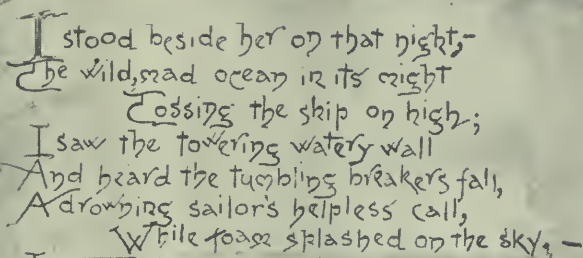 I stood beside her on that night,-
The wild, mad ocean in its might
Tossing the ship on high;
I saw the towering watery wall
And heard the tumbling breakers fall,
A drowning sailor's helpless call,
While foam splashed on the sky, -